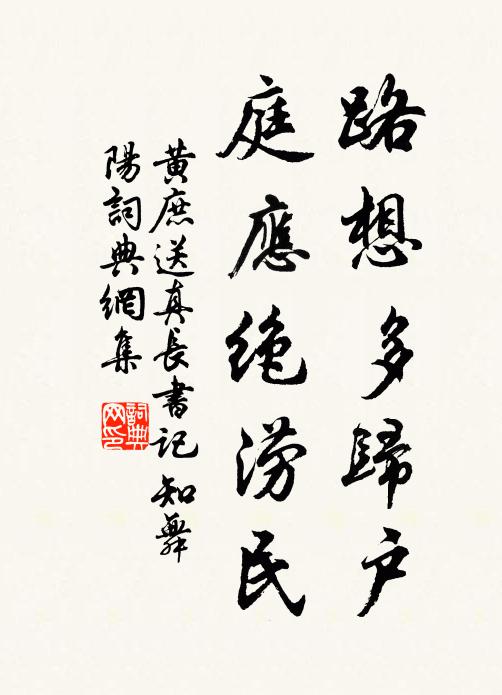 路想多歸户
庭應絶涝民
黃庶送真長書記 知舞
陽詞典網集
詞典网印